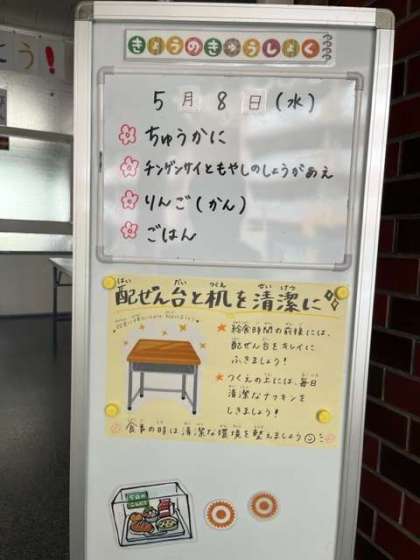 う!
きょうのきゅうしょく
5月8日(水)
ちゅうかに
チンゲンサイともやしのしょうがあえ
りんご(かん)
ごはん
配ぜん台と机を清潔に
はい だい つくえ せいけつ
★給食時間の前後には、
配ぜん台をキレイに
ふきましょう!
★つくえの上には、毎日
清潔なナフキンを
しきましょう!
食事の時は清潔な環境を整えましょう